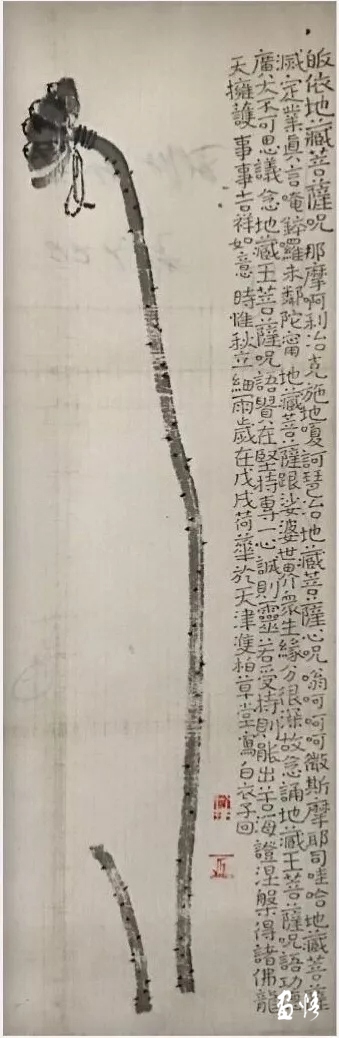 皈依地藏菩薩咒 那摩啊利冶克施地嘎訶琶冶地藏菩薩心咒 嗡呵呵呵微斯摩耶司哇哈地藏菩薩
滅定業真言唵鉡囉末鄰陀甯 地藏菩薩跟娑婆世界眾生緣分很深故念誦地藏王菩薩咒語功德
廣大不可思議 念地藏王菩薩咒語貴在堅持專一心誠則靈若受持則能出苦海證涅槃得諸佛龍
天擁護 事事吉祥如意 時惟秋立細雨歲在戊戌荷華於天津雙柏草堂寫白衣子回